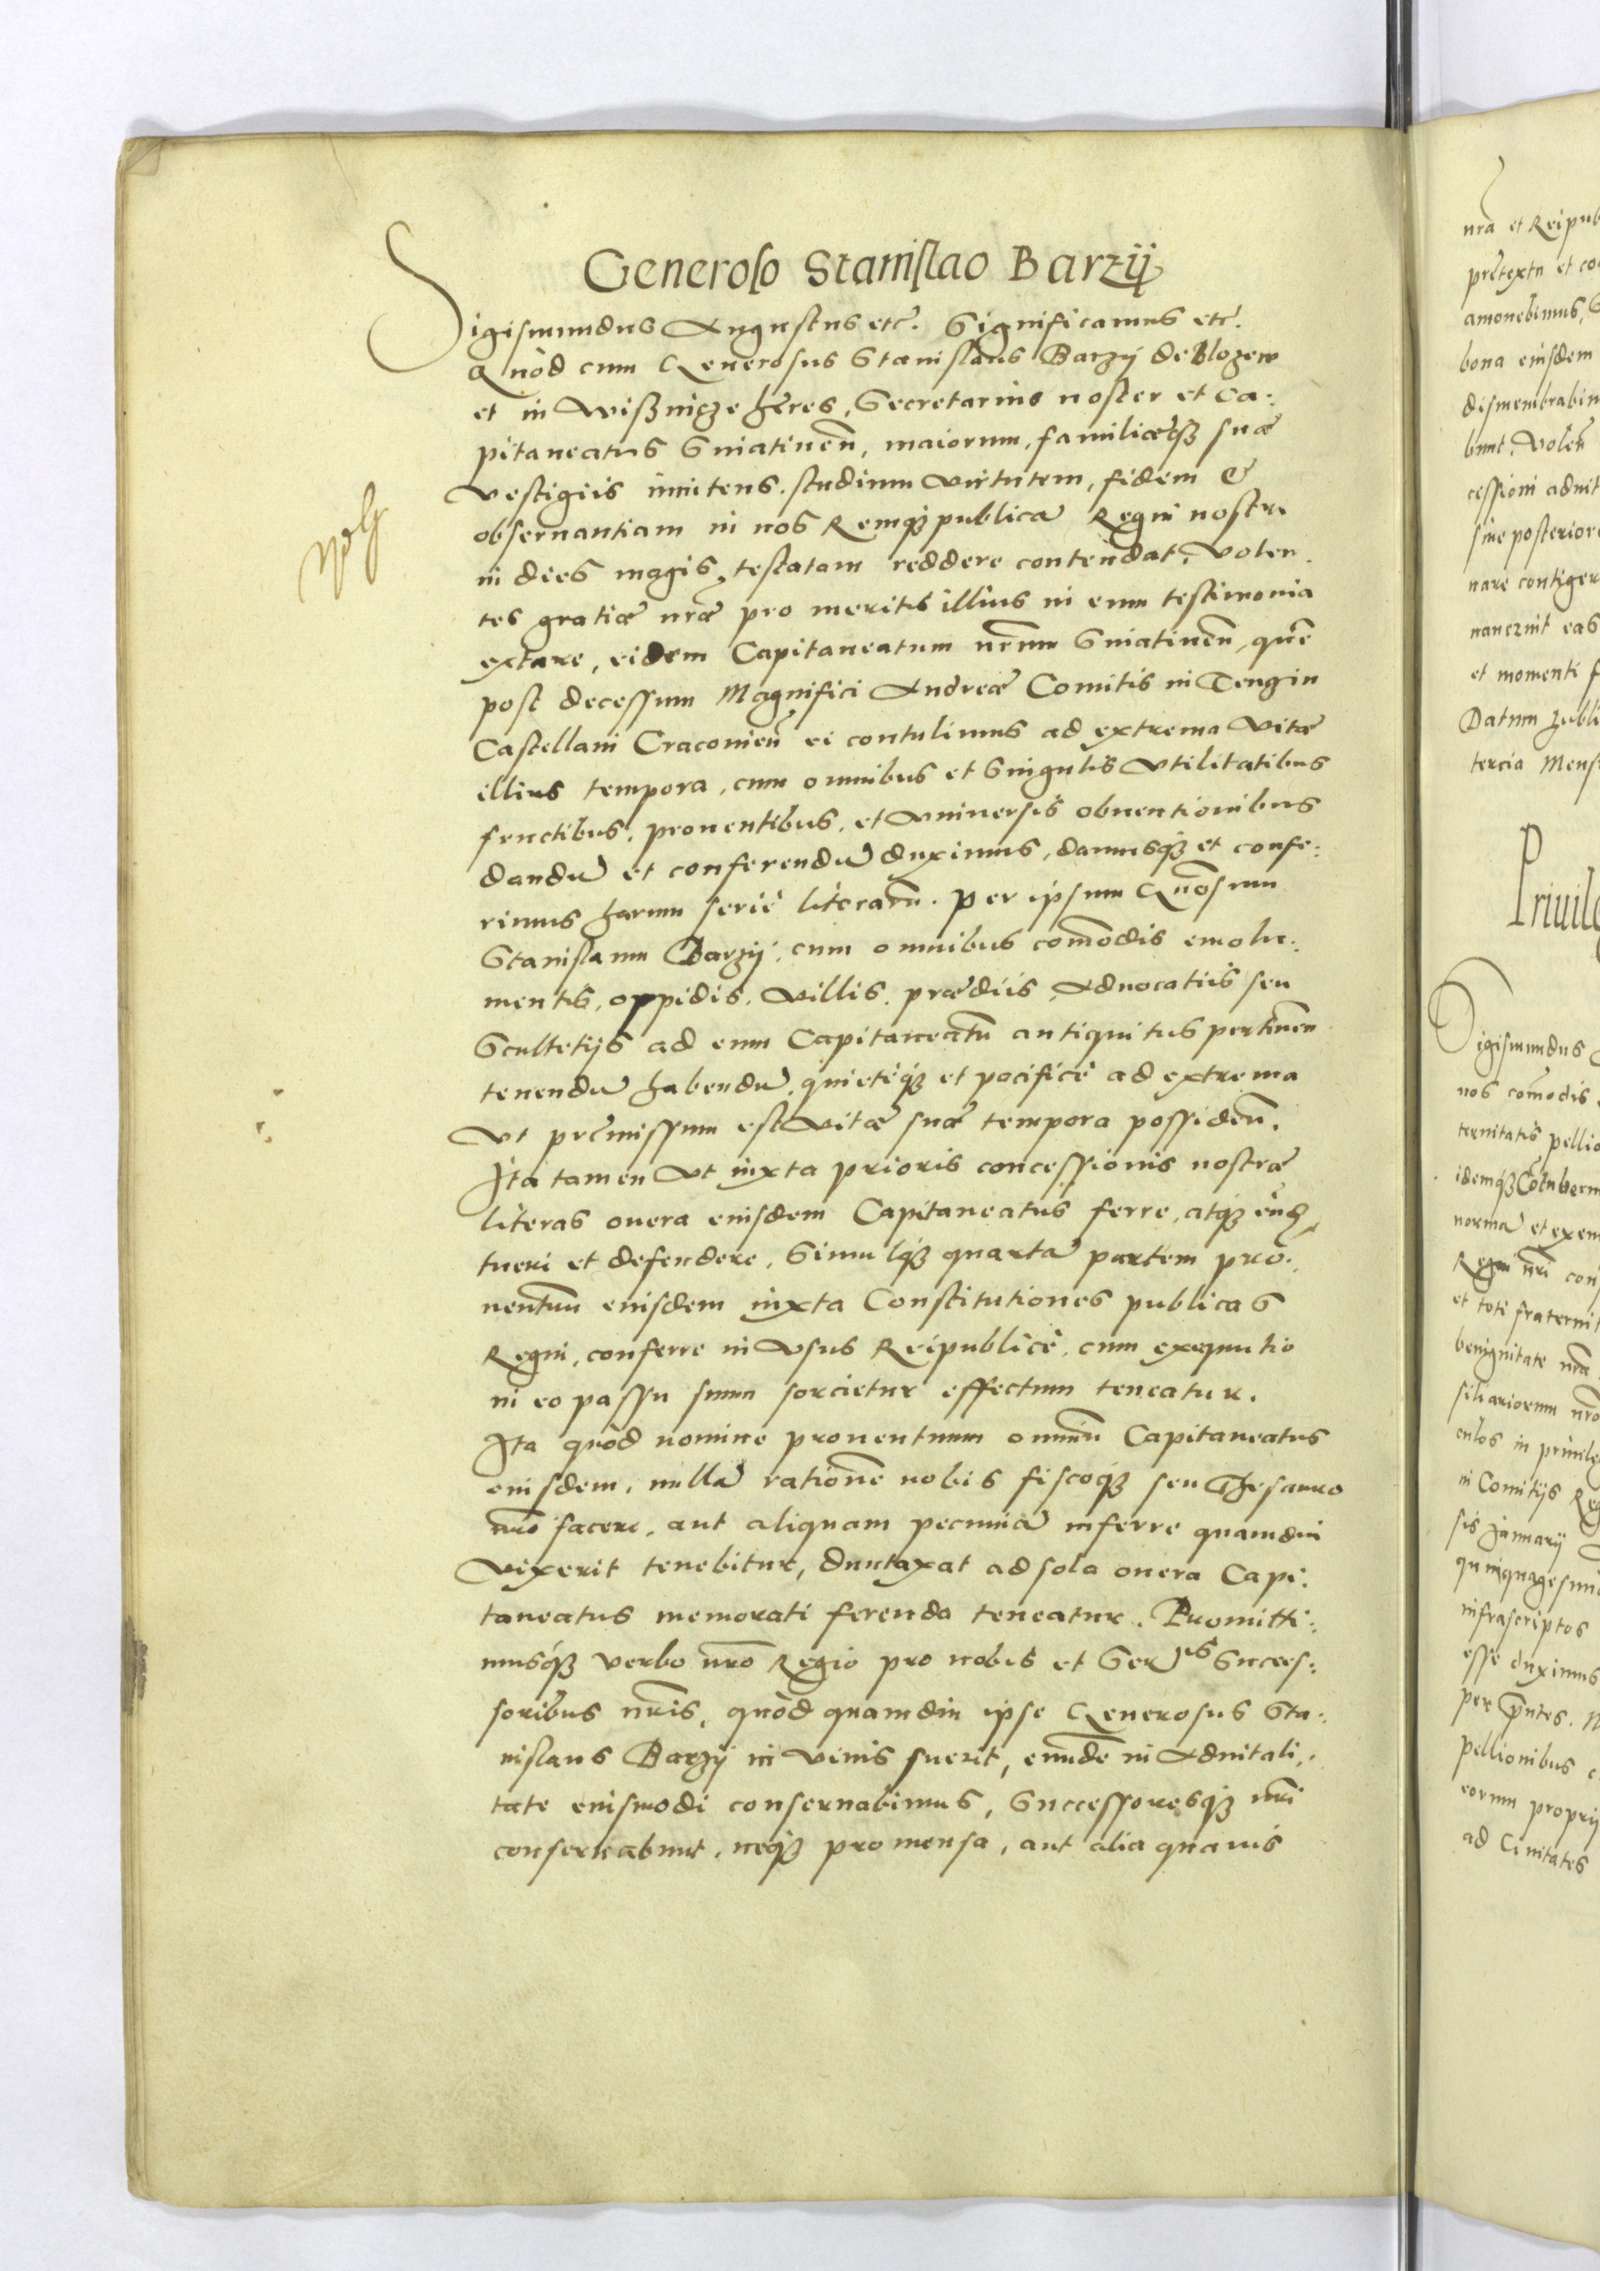 Generoso Stanislao Barzÿ
Sigismundus Augustus etc. Significamus etc.
Quòd cum Generosus Stanislaus Barzÿ de Blozew
et in Wißnicze heres, Secretarius noster et Ca:
pitaneatus Sniatinen̄, maiorum, familiæqȝ suæ
vestigiis innitens, studium virtutem, fidem &
obseruantiam in nos Remqȝ publicā Regni nostri
in dies magis, testatam reddere contendat, volen
tes gratiæ nr̄æ pro meritis illius in eum testimonia
extare, eidem Capitaneatum nr̄um Sniatinen̄, quē
post decessum Magnifici Andreæ Comitis in Tengin
Castellani Cracouien̄ ei contulimus ad extrema vitæ
illius tempora, cum omnibus et Singulis vtilitatibus
fructibus, prouentibus, et vniuersis obuentionibus
dandū et conferendū duximus, damusqȝ et confe:
rimus harum serie literarū. Per ipsum Gn̄osum
Stanislaum Barzÿ, cum omnibus com̄odis emolu:
mentis, oppidis, villis, prædiis, Aduocatiis seu
Scultetijs ad eum Capitaneatū antiquitus pertinen
tenendū habendū, quietèqȝ et pacificè ad extrema
vt præmissum est vitæ suæ tempora possiden̄.
Ita tamen vt iuxta prioris concessionis nostræ
literas onera eiusdem Capitaneatus ferre, atqȝ eūd
tueri et defendere, Simulqȝ quartā partem pro:
uentuū eiusdem iuxta Constitutiones publicas
Regni, conferre in vsus Reipublicè, cum exequutio
in eo passu suum sorcietur effectum teneatur.
Ita quòd nomine prouentuum omniū Capitaneatus
eiusdem, nullā rationē nobis fiscoqȝ seu Thesauro
nr̄o facere, aut aliquam pecuniā inferre quamdiu
vixerit tenebitur, duntaxat ad sola onera Capi:
taneatus memorati ferenda teneatur. Promitti:
musqȝ verbo nr̄o Regio pro nobis et Ser~is Succes:
soribus nr̄is, quòd quamdiu ipse Generosus Sta:
nislaus Barzÿ in viuis fuerit, eundē in Aduitali:
tate eiusmodi conseruabimus, Successoresqȝ nr̄i
conseruabunt, neqȝ pro mensa, aut alia quauis
nrā et Reipub
prætextu et co
amouebimus, S
bona eiusdem
dismembrabim
bunt, Volen̄
cessioni aduit
siue posterior
nare contiger
nanczuit eas
et momenti f
Datum Lubli
tercia Mens
Priuile
Sigismundus
nos com̄odis
ternitatis pellio
idemqȝ Cōtuberni
normā et exem
Regni nr̄i con
et toti fraternit
benignitate nr̄a
siliariorum nr̄o
culos in priuile
in Comitijs Reg
sis January
quinquagesimo
infrascriptos
esse duximus
per p̄ntes.
pellionibus
eorum proprij
ad Ciuitates